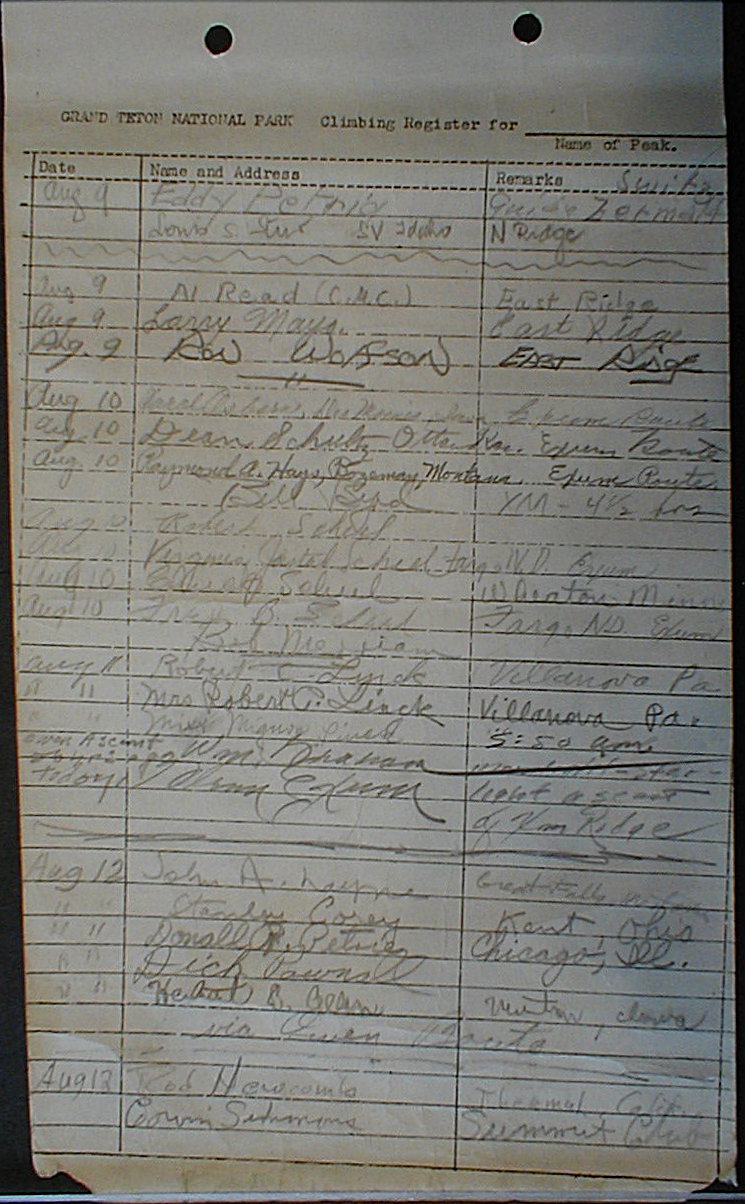 GRAND TETON NATIONAL PARK Climbing Register for
Name of Peak.
Date Name and Address Remarks
Aug 9 Eddy Petrig Guide Zermatt
Louis S SV Idaho N Ridge
Aug 9 Al Read (C.M.C.) East Ridge
Aug 9 Larry Mays. East Ridge
Aug. 9 RON WATSON EAST Ridge
Aug 10 Des Moines, Iowa Exum Route
Aug. 10 Dean Schultz Kan. Exum Route
Aug. 10 Raymond A. Hays, Bozeman, Montana. Exum Route.
Bill Byrd YM - 4½ hrs
Aug 10 Robert Scheel
Aug 10 Virginia Scheel Fargo N.D. Exum
Aug 10 Scheel Wheaton Minn
Aug 10 Fred B. Fargo ND Exum
Bob Merriam
Aug 11 Robert C. Linck Villanova Pa
" " Mrs Robert C. Linck Villanova Pa.
" " Miss 5:50 am.
Ascent Wm.
today Glenn Exum
light ascent
of Xm Ridge
Aug 12 John A. Great Falls
" " Stanley Corey Kent, Ohio
" " Donald R. Petrie Chicago, Ill.
" " Dick Pownall
" " Herbert D. Newton, Iowa
via Owen Route
Aug 13 Rod Newcomb Thermal, Calif.
Corwin Simmons Summit Club